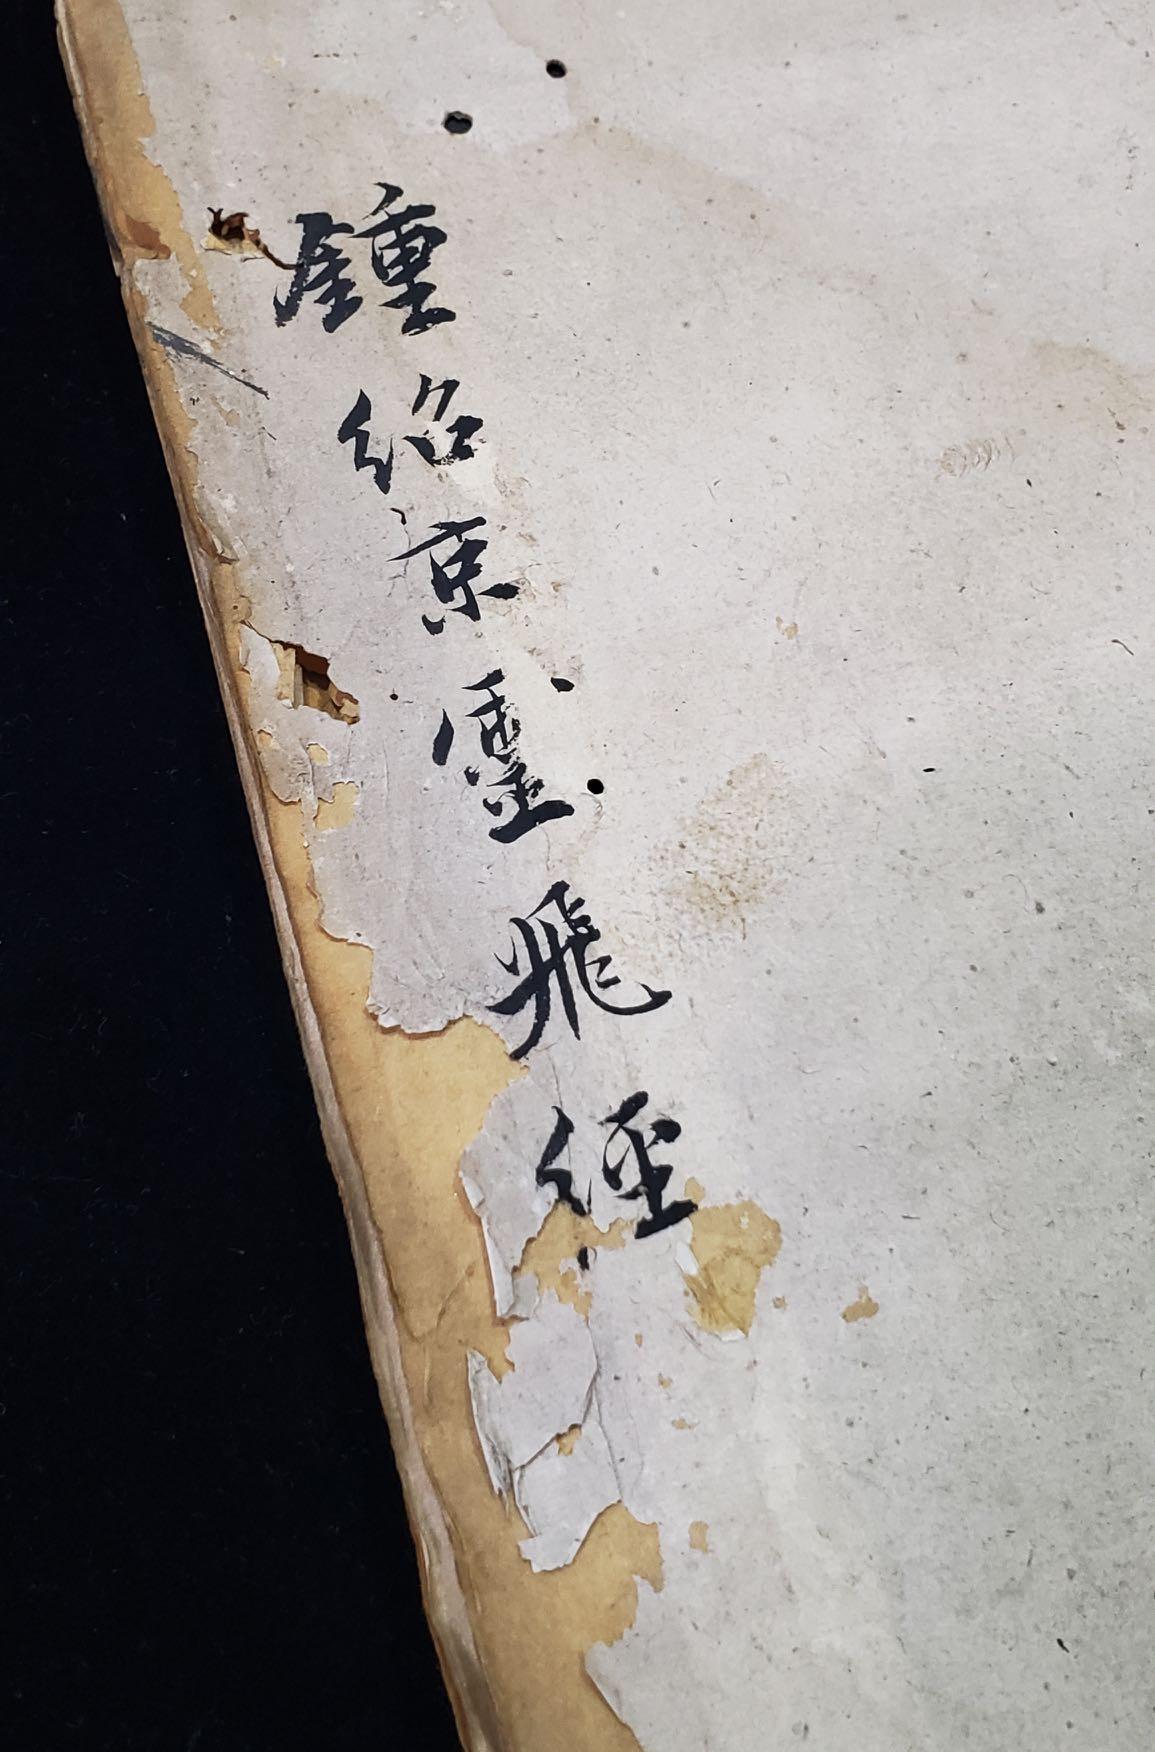 鍾紹京靈飛經